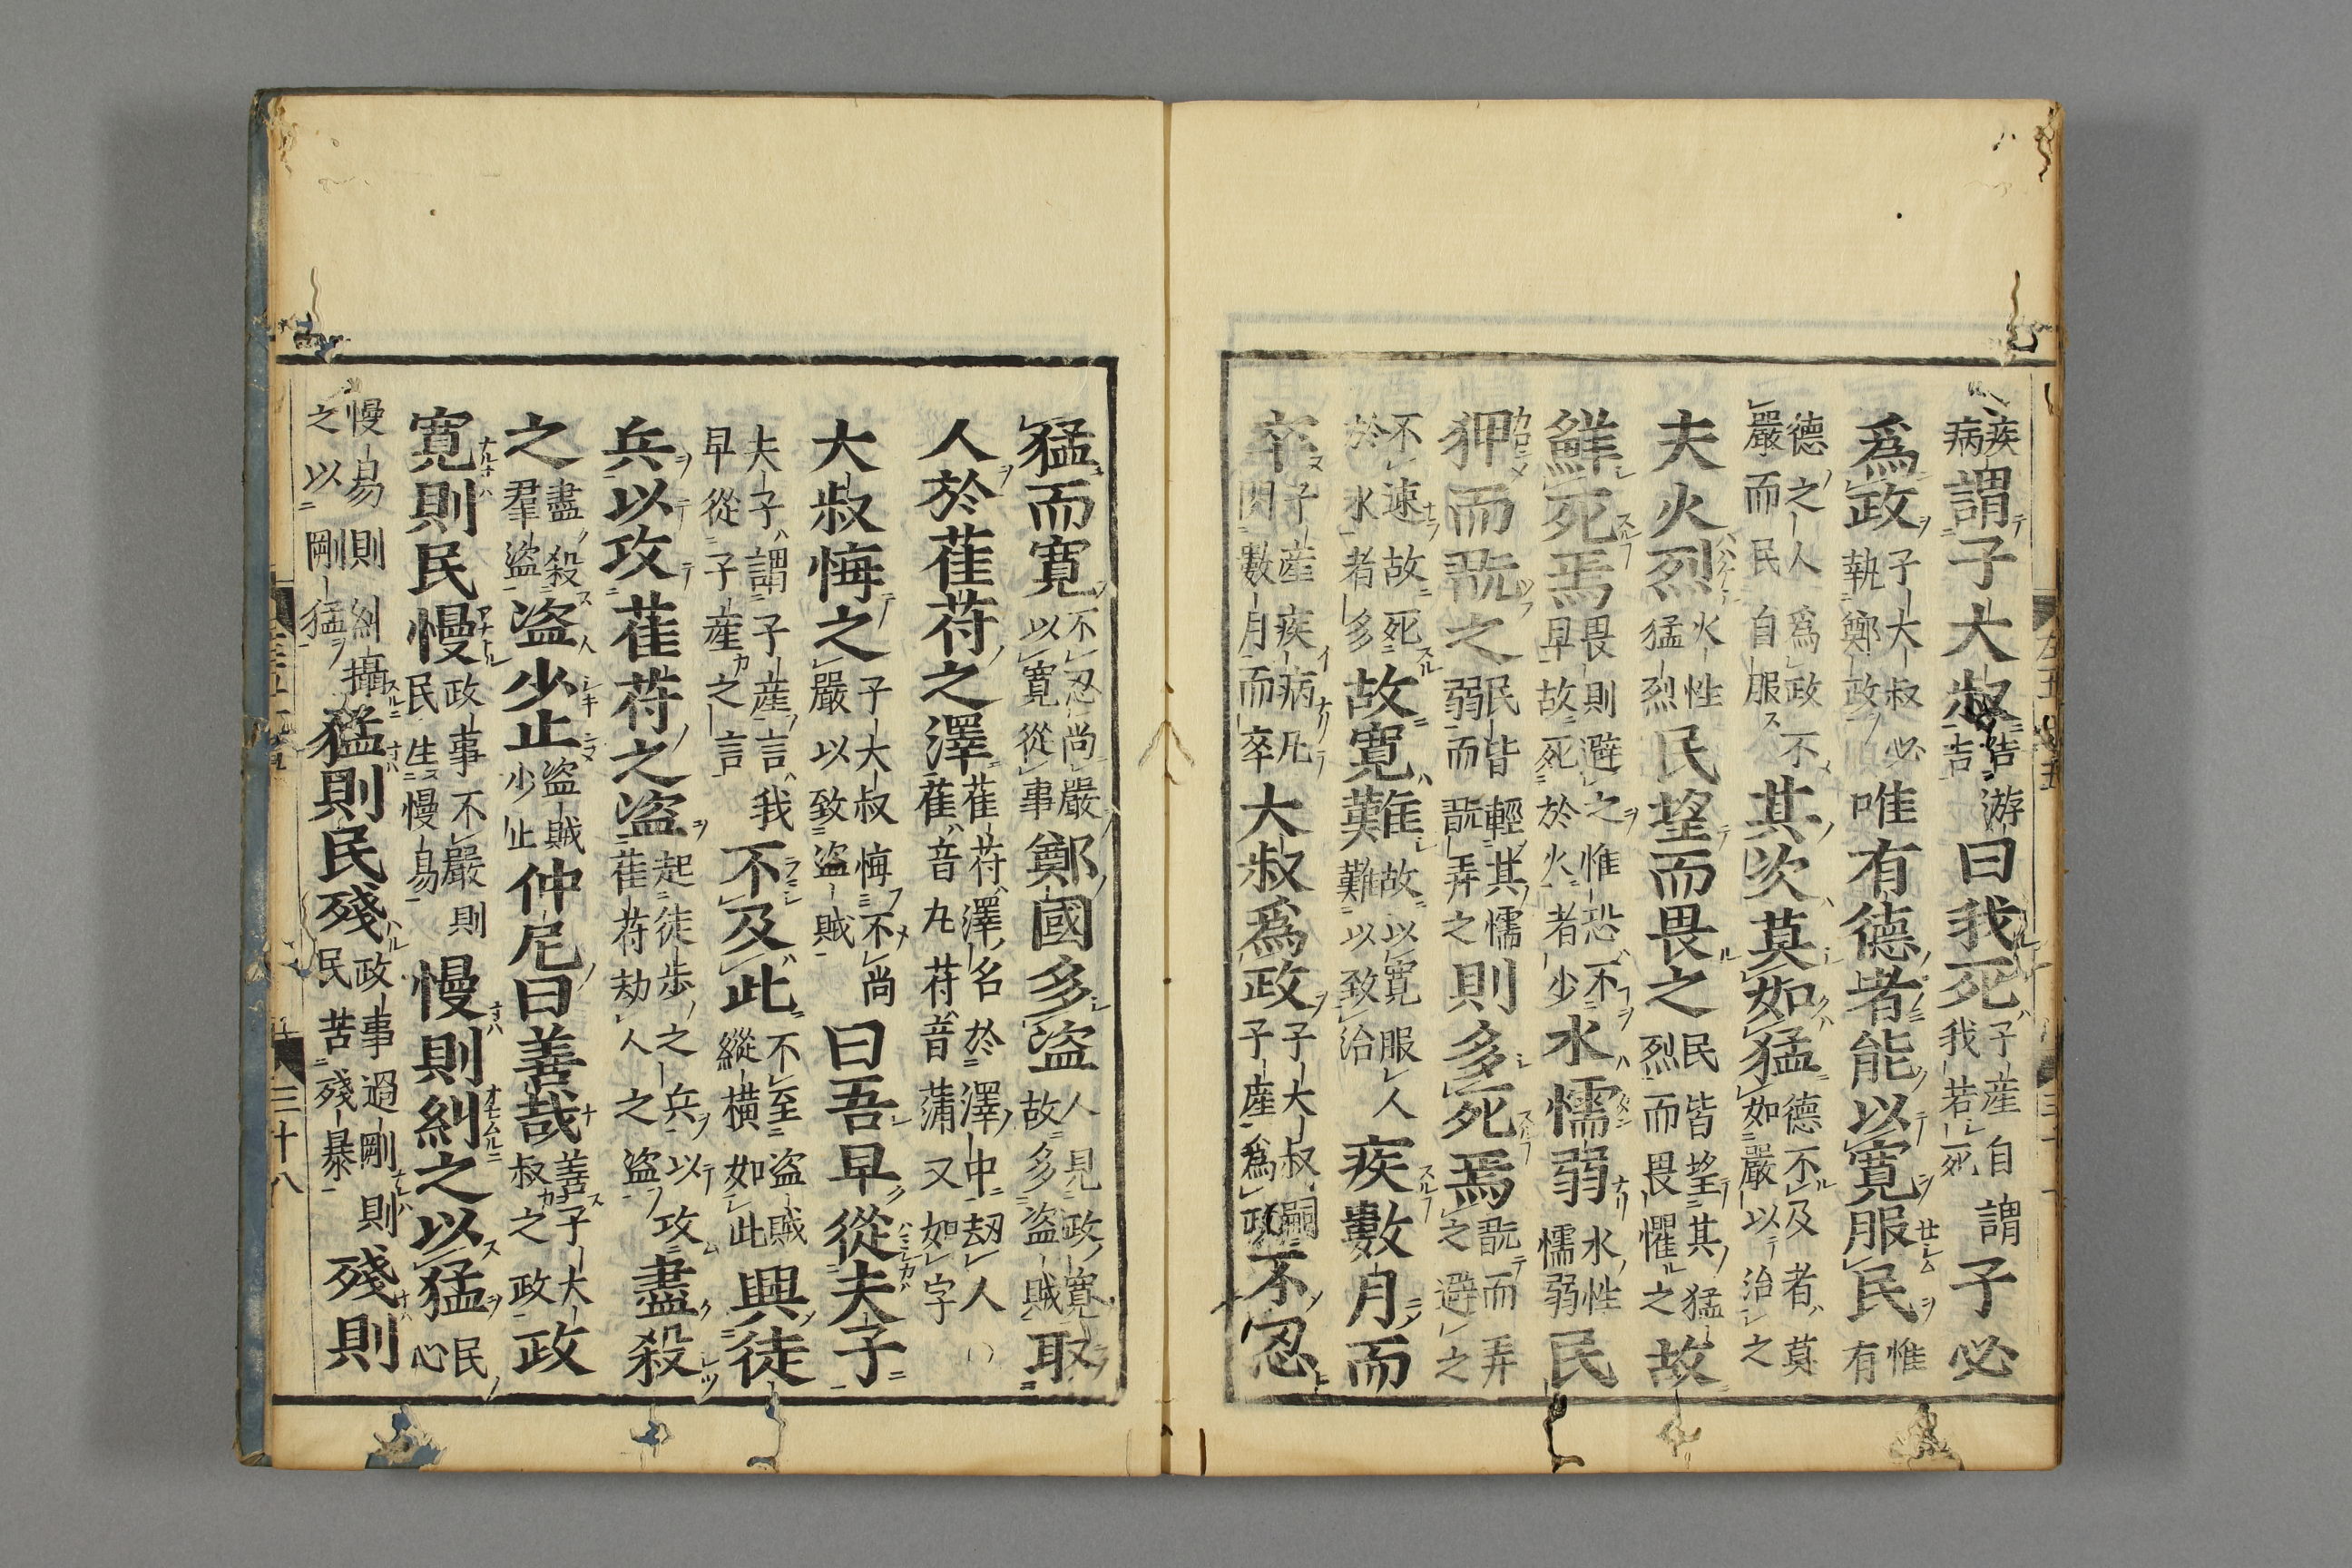 疾病謂子大叔告游吉曰我死子産自謂我若死子必
爲政子大叔必執鄭政唯有德者能以寬服民惟有
德之人爲政不嚴而民自服其次莫如猛德不及者莫如嚴以治之
夫火烈火性猛烈民望而畏之民皆望其猛烈而畏懼之故
鮮死焉畏則避之惟恐不早故死於火者少水懦弱水性懦弱民
狎而翫之民皆輕其懦弱而翫弄之則多死焉翫而弄之避之
不速故死於水者多故寬難故以寬服人難以致治疾數月而
卒子産疾病凡閲數月而卒大叔爲政子大叔嗣子産爲政不忍
猛而寬不忍尚嚴以寬從事鄭國多盜人見政寬故多盜賊取
人於萑苻之澤萑苻澤名於澤中劫人萑音丸苻音蒲又如字
大叔悔之子大叔悔不尚嚴以致盜賊曰吾早從夫子
夫子謂子産言我早從子産之言不及此不至盜賊縱橫如此興徒
兵以攻萑苻之盜起徒歩之兵以攻萑苻劫人之盜盡殺
之盡殺羣盜盜少止盜賊少止仲尼曰善哉善子大叔之政政
寬則民慢政事不嚴則民生慢易慢則糾之以猛民心
慢易則糾攝之以剛猛猛則民殘政事過剛則民苦殘暴殘則
三十八